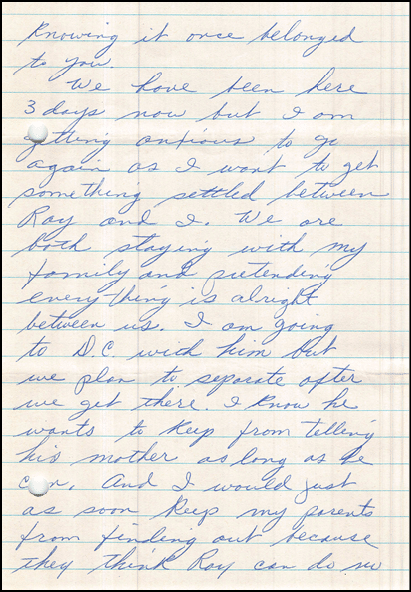 Knowing it once belonged
to you.
We have been here
3 days now but I am
getting anxious to go
again as I want to get
something settled between
Ray and I. We are
both staying with my
family and pretending
everything is alright
between us. I am going
to D.C. with him but
we plan to separate after
we get there. I know he
wants to keep from telling
his mother as long as he
can. And I would just
as soon keep my parents
from finding out because
they think Ray can do no